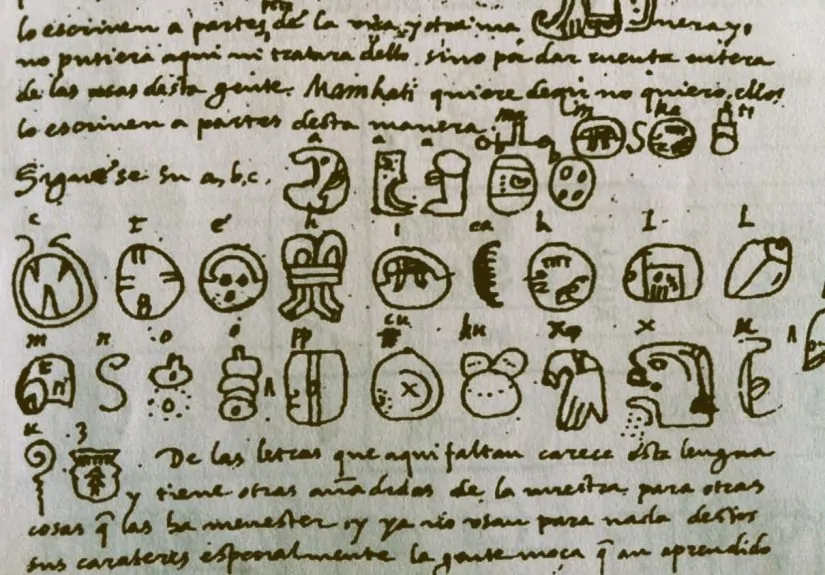 lo escriven a partes de la una y otra ma nera y,
no pusiera aqui ni tratara dello sino por dar cuenta entera
de las cosas desta gente. Mamkati quiere dezir no quiero, ellos
lo escriven a partes desta manera. ma ka ti
Siguese su a, b, c. a a a b
c t e h i ca k l l
m n o o pp cu ku x x u
u z De las letras que aqui faltan carece esta lengua
y tiene otras añadidas de la nuestra para otras
cosas q las ha menester, y ya no usan para nada destos
sus carateres especialmente la gente moça q an aprendido